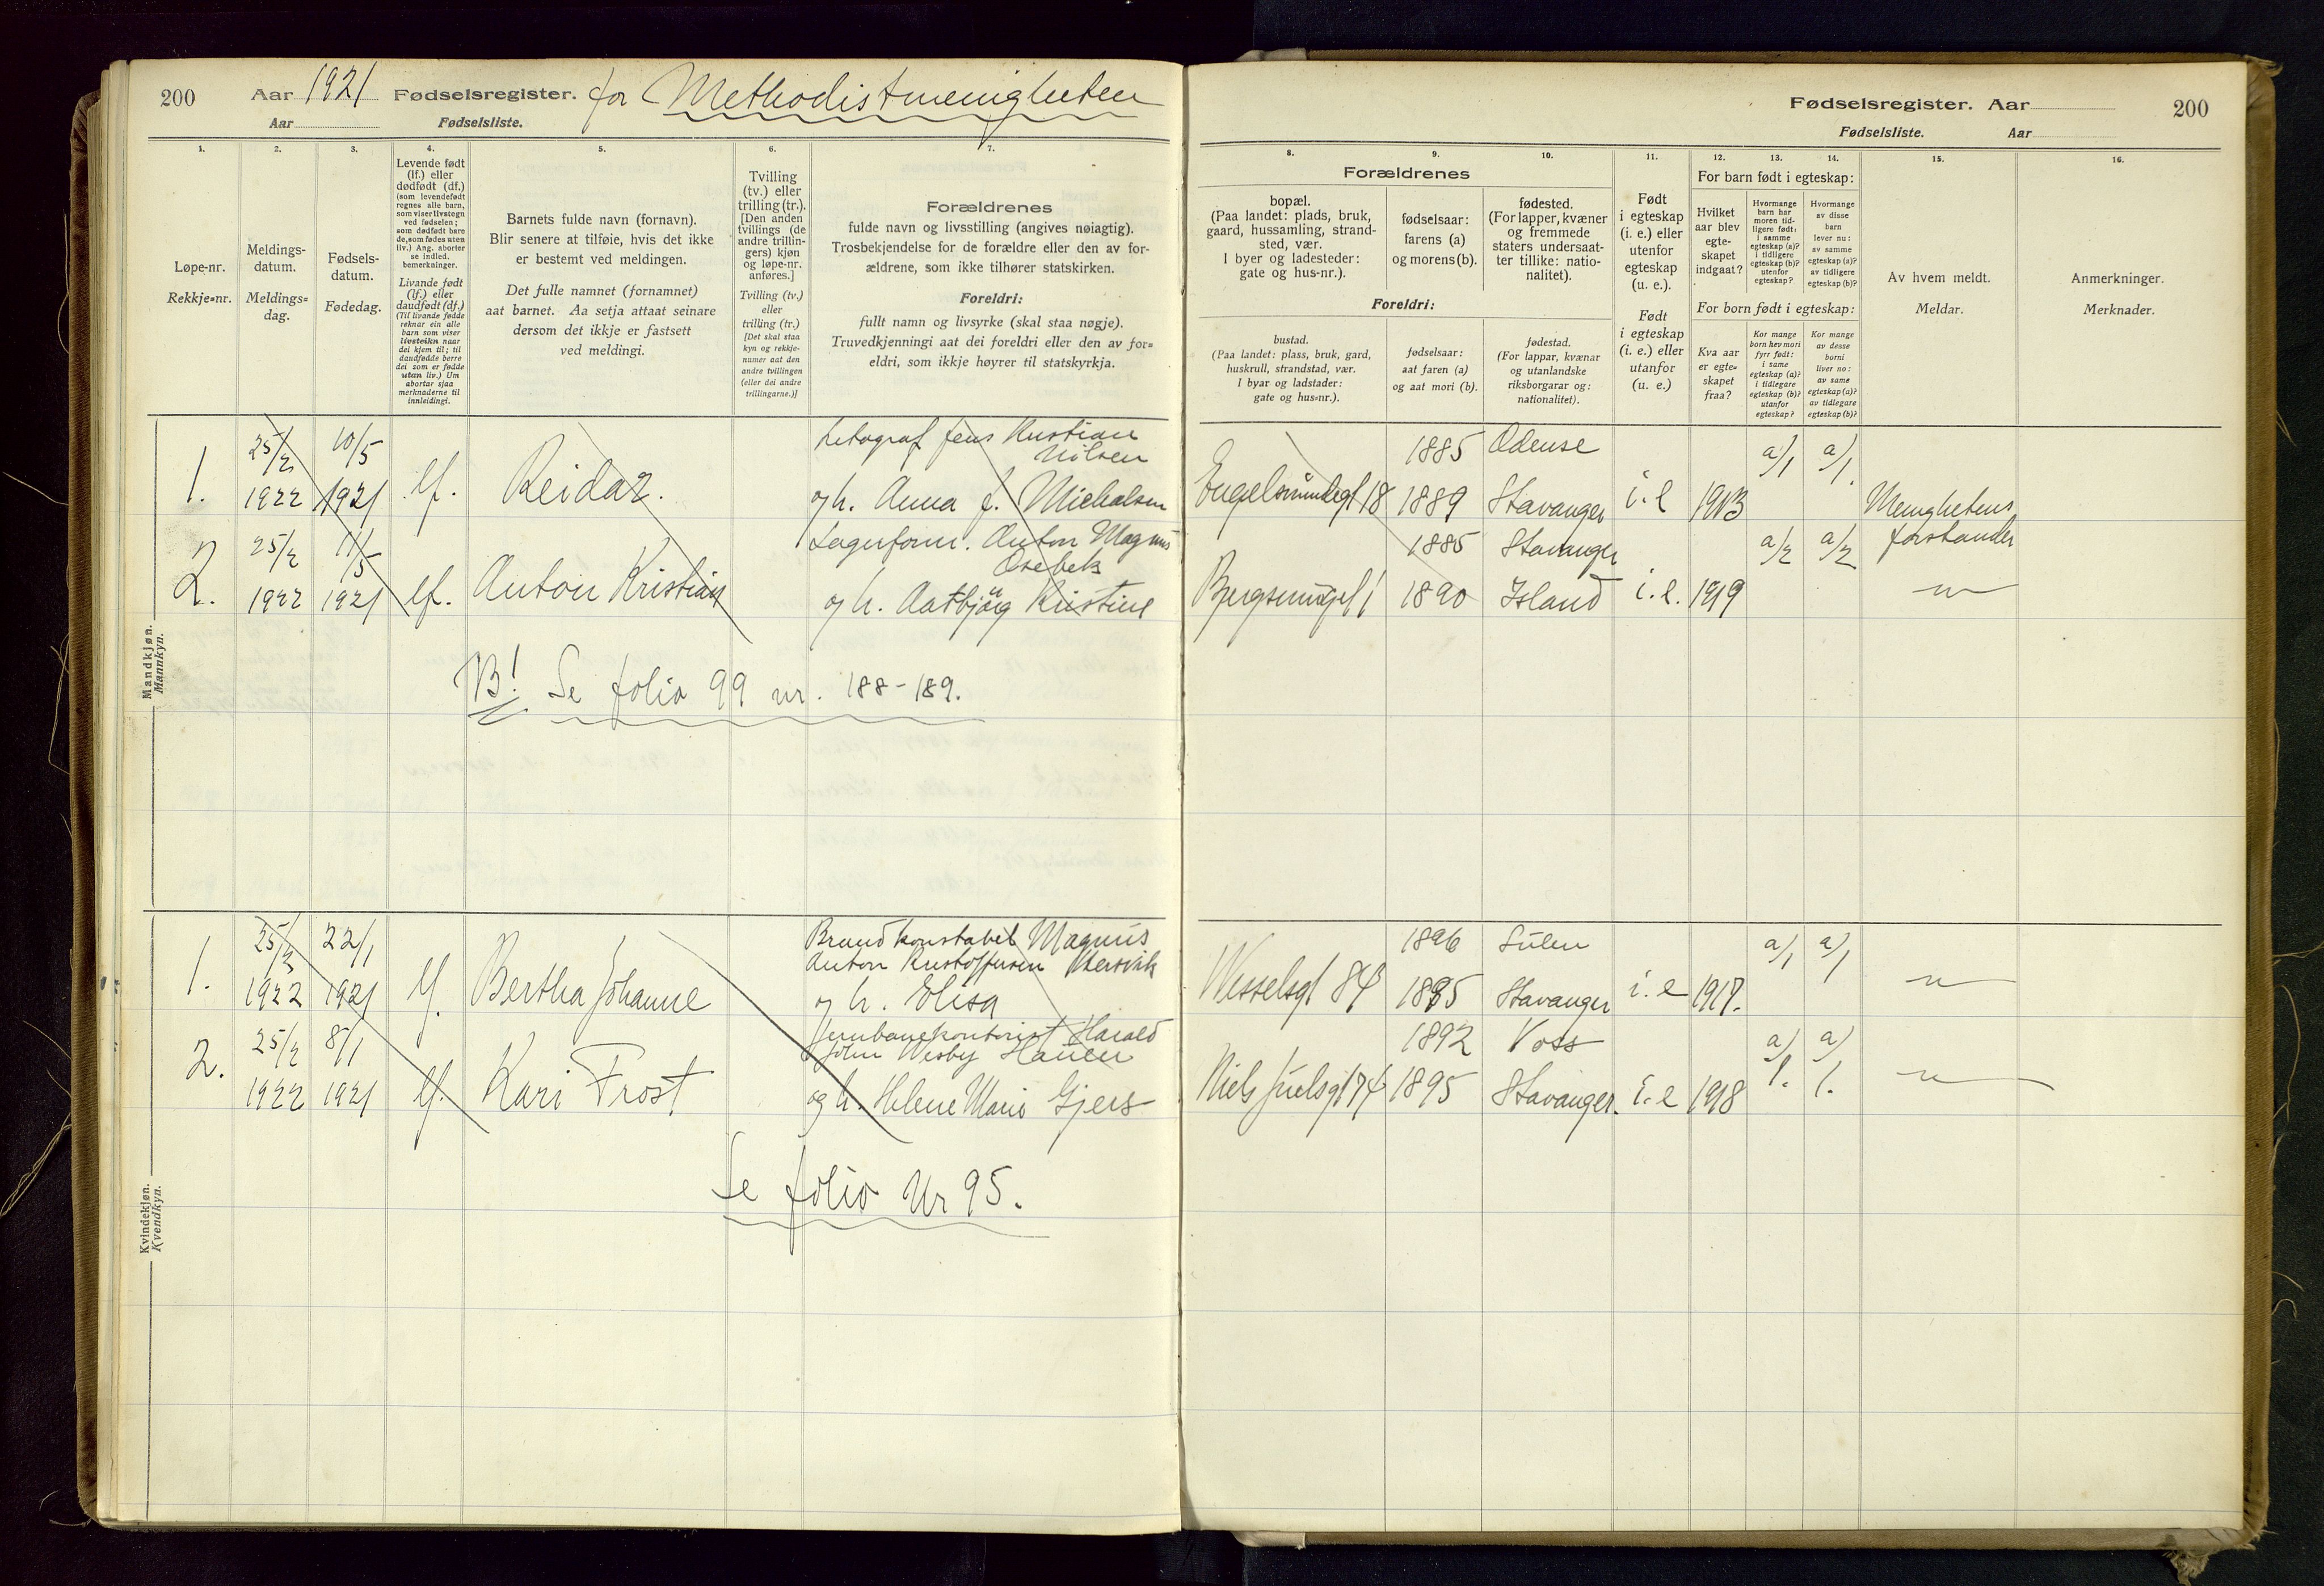 200 Aar 1921 Fødselsregister. for Methodistmenigheten
Aar Fødselsliste.
Fødselsregister. Aar 200
Fødselsliste. Aar
1. 2. 3. 4. 5. 6. 7.
Løpe-nr.
Rekkje-nr.
Meldings-
datum.
Meldings-
dag.
Fødsels-
datum.
Fødedag.
Levende født
(lf.) eller
dødfødt (df.)
(som levendefødt
regnes alle barn,
som viser livstegn
ved fødselen;
som dødfødt bare
de, som fødes uten
liv.) Ang. aborter
se indled.
bemerkninger.
Livande født
(lf.) eller
daudfødt (df.)
(Til livande fødde
reknar ein alle
barn som viser
livsteikn naar
dei kjem til; til
daudfødde berre
dei som er fødde
utan liv.) Um
abortar sjaa
merknaderne til
innleidingi.
Barnets fulde navn (fornavn).
Blir senere at tilføie, hvis det ikke
er bestemt ved meldingen.
Det fulle namnet (fornamnet)
aat barnet. Aa setja attaat seinare
dersom det ikkje er fastsett
ved meldingi.
Tvilling
(tv.) eller
trilling (tr.).
[Den anden
tvillings (de
andre trillin-
gers) kjøn
og løpe-nr.
anføres.]
Tvilling (tv.)
eller
trilling (tr.)
[Det skal staa
kyn og rekkje-
numer aat den
andre tvillingen
(eller dei andre
trillingarne.)]
Forældrenes
fulde navn og livsstilling (angives nøiagtig).
Trosbekjendelse for de forældre eller den av for-
ældrene, som ikke tilhører statskirken.
Foreldri:
fullt namn og livsyrke (skal staa nøgje).
Truvedkjenningi aat dei foreldri eller den av for-
eldri, som ikkje høyrer til statskyrkja.
8. 9. 10. 11. 12. 13. 14. 15. 16.
Forældrenes
bopæl.
(Paa landet: plads, bruk,
gaard, hussamling, strand-
sted, vær.
I byer og ladesteder:
gate og hus-nr.).
fødselsaar:
farens (a)
og morens (b).
fødested.
(For lapper, kvæner
og fremmede
staters undersaat-
ter tillike: natio-
nalitet).
Foreldri:
bustad.
(Paa landet: plass, bruk, gard,
huskrull, strandstad, vær.
I byar og ladstader:
gate og hus-nr.).
fødselsaar:
aat faren (a)
og aat mori (b).
fødestad.
(For lappar, kvænar
og utanlandske
riksborgarar og:
nationalitet).
Født
i egteskap
(i. e.) eller
utenfor
egteskap
(u. e.).
Født
i egteskap
(i. e.) eller
utanfor
(u. e.)
For barn født i egteskap:
Hvilket
aar blev
egte-
skapet
indgaat?
Hvormange
barn har
moren tid-
ligere født:
i samme
egteskap (a)?
i tidligere
egteskap (b)?
utenfor
egteskap?
Hvormange
av disse
barn
lever nu:
av samme
egteskap (a)?
av tidligere
egteskap (b)?
For born født i egteskap:
Kva aar
er egte-
skapet
fraa?
Kor mange
born hev mori
fyrr født:
i same
egteskap (a)?
i tidlegare
egteskap (b)?
utanfor
egteskap?
Kor mange
av desse
borni
liver no:
av same
egteskap (a)?
av tidlegare
egteskap (b)?
Av hvem meldt.
Meldar.
Anmerkninger.
Merknader.
Mandkjøn.
Mannkyn.
1. 25/2 1922 10/5 1921 lf. Reidar. Litograf Jens Kristian
Nilsen
og h. Anna J. Michalsen
1885 Odense a/1 a/1
Engelsmindegt 18 1889 Stavanger i. e 1913 Menighetens
forstander
2. 25/2 1922 11/5 1921 lf. Anton Kristian Lagerform. Anton Magnus
Osebek
og h. Aasbjörg Kristine
1885 Stavanger a/2 a/2
Bjergsmuget 1 1890 Island i. e. 1919 "
NB! Se folio 99 nr. 188-189.
Kvindekjøn.
Kvendkyn.
1. 25/2 1922 22/1 1921 lf. Bertha Johanne Brandkonstabel Magnus
Anton Kristoffersen
og h. Elisa
1896 Sulen a/1 a/1
Wesselsgt 84 1895 Stavanger i. e 1917. "
2. 25/2 1922 8/1 1921 lf. Kari Frost Jernbanekontorist Harald
John Wesby Hansen
og h. Helene Marie Gjers
1892 Voss a/1. a/1.
Niels Juelsgt 74 1895 Stavanger. i. e 1918 "
Se folio Nr 95.